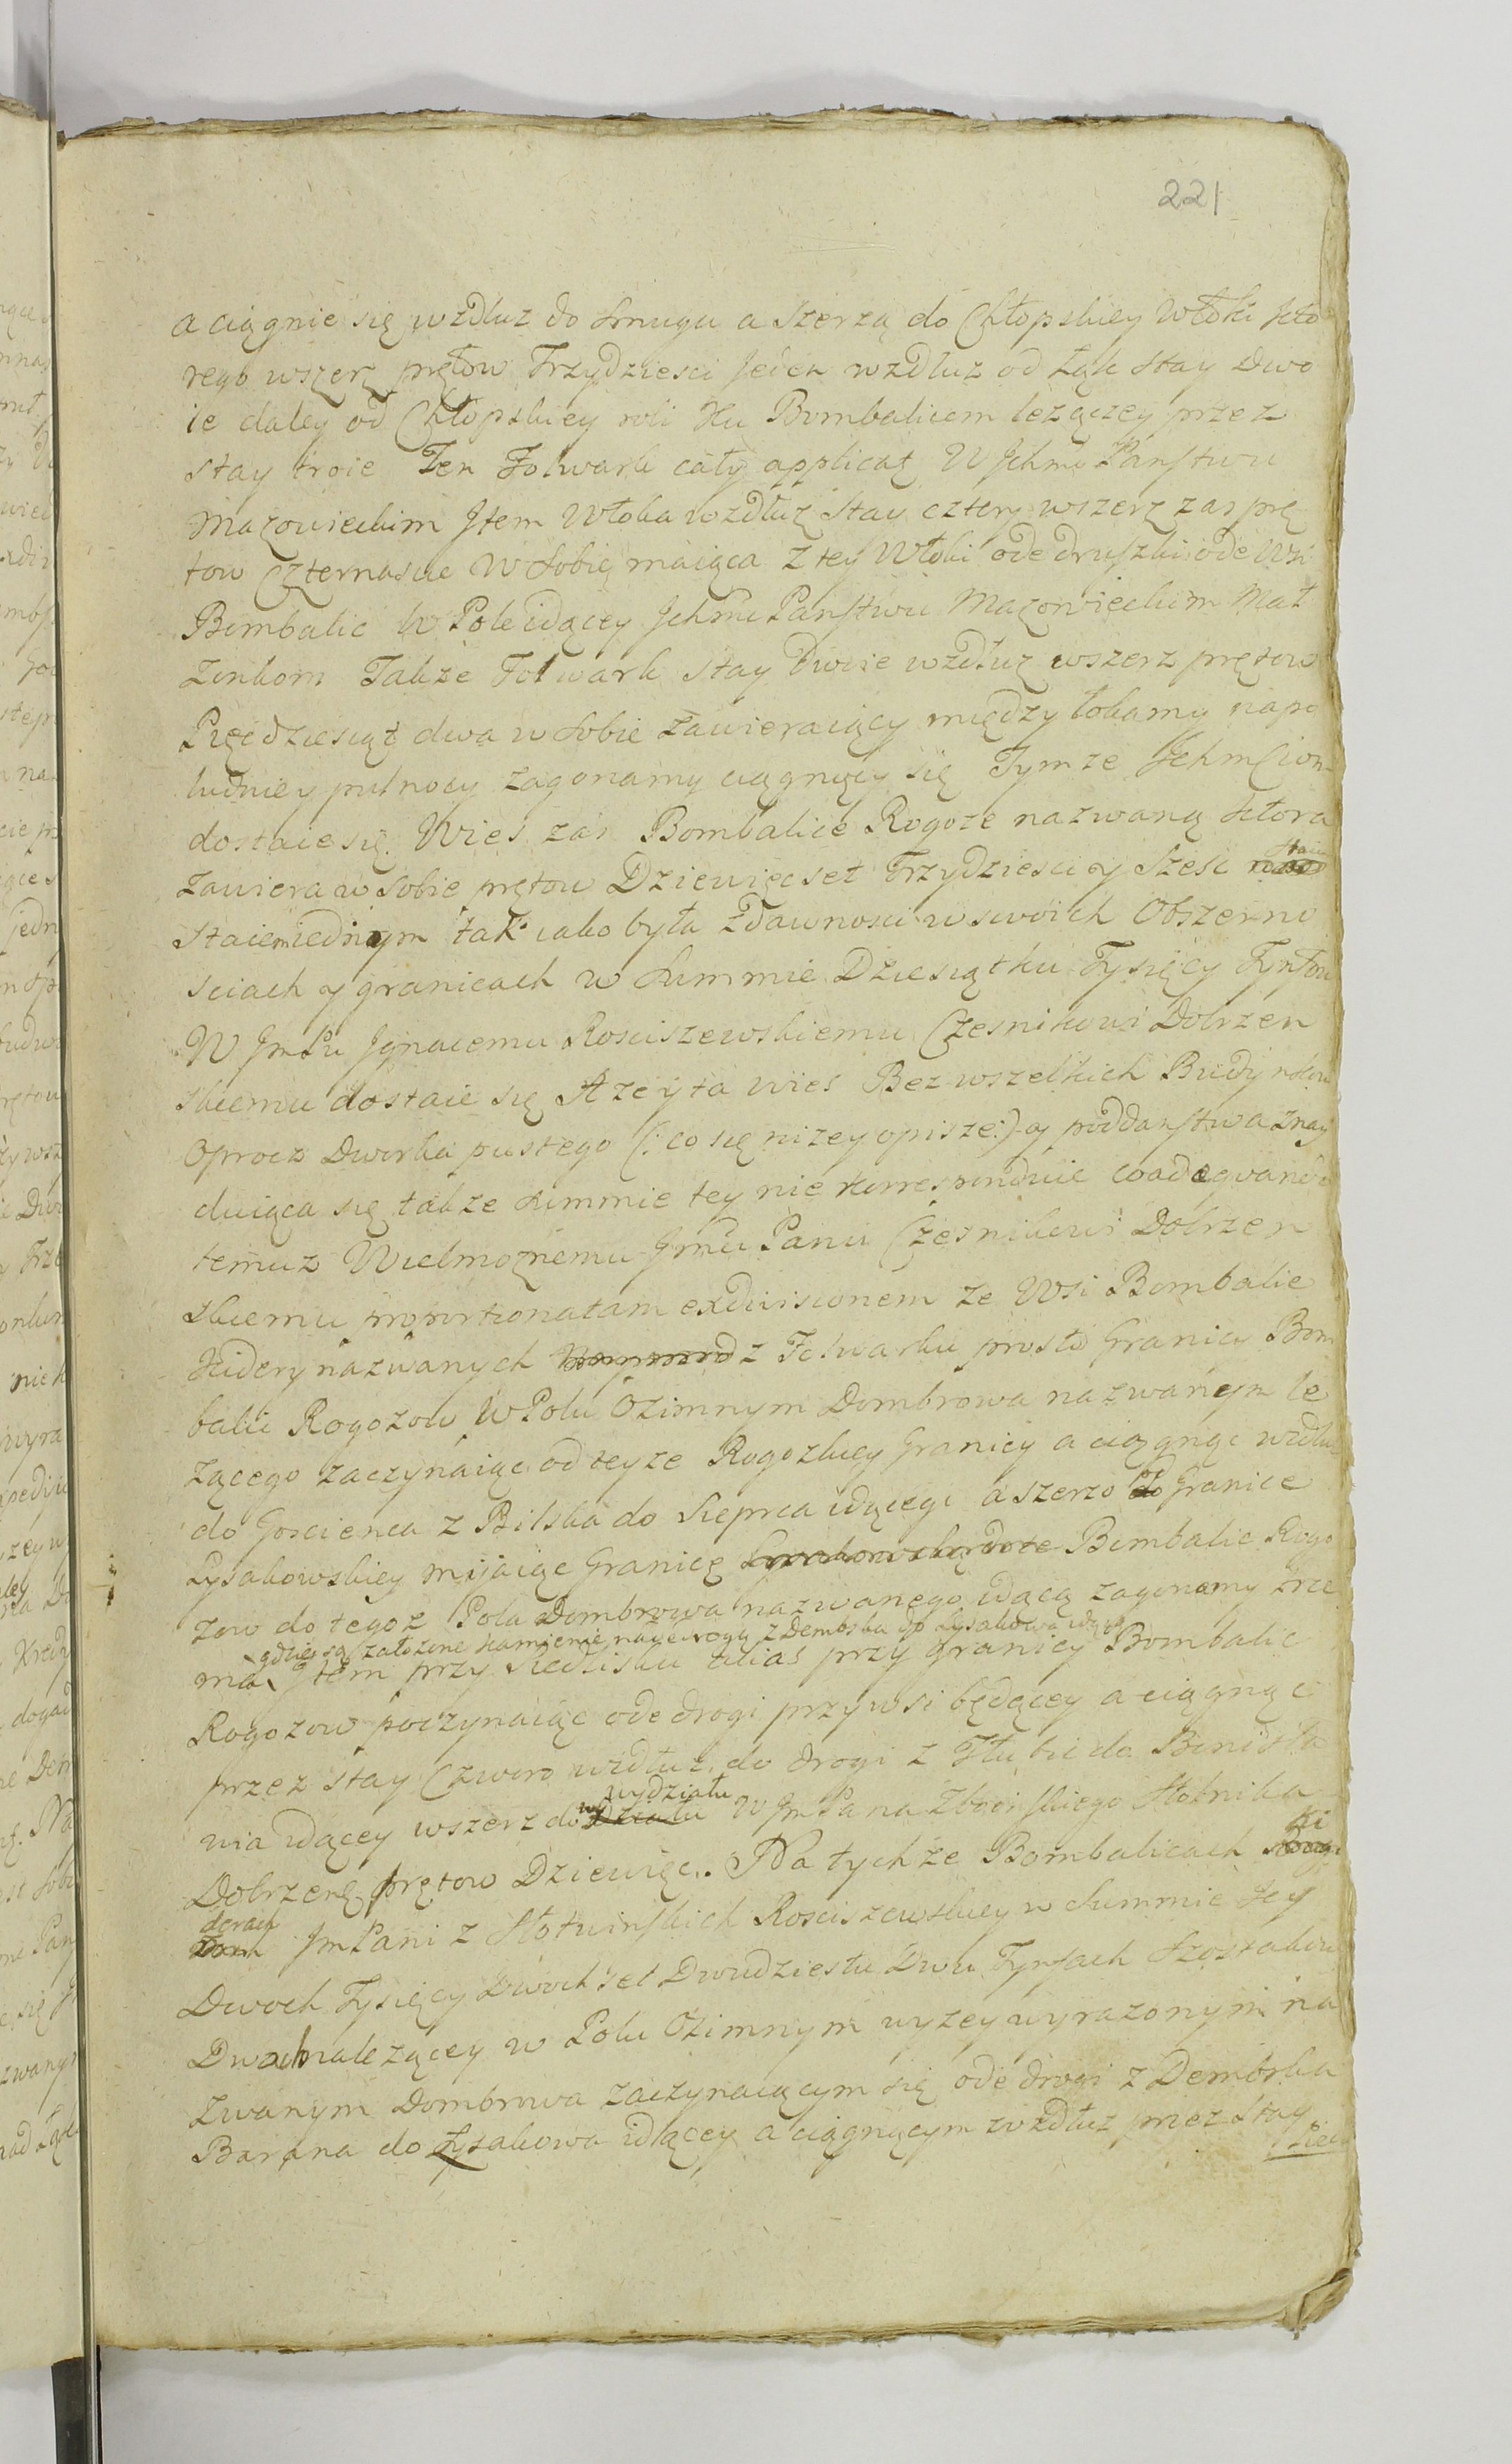 221
a ciągnie się wzdluz do Smugu a szerzą do Chłopskiey Włoki kto
rego wszerz prętow Trzydziesci Jeden wzdluz od Łąk stay dwo
ie daley od Chłopskiey roli ku Bombalicom lezączey przez
stay troie Ten Folwark cały applicat W Jchmę Panstwu
Mazowieckim Jtem Włoka wzdłuz stay cztery wszerz zas prę
tow Czternascie W sobie maiąca z tey Włoki ode druszki ode Wsi
Bombalic W Pole idącey Jchmę Panstwu Mazowieckim Mał
zonkom Także Folwark stay Dwoie wzdłuz wszerz prętow
Pięcdziesiąt dwa w sobie zawieraiący między łokamy napo
łudnie y pułnocy zagonamy ciągnący się Tymze JchmCiom
dostaie się. Wies zas Bombalice Rogoze nazwaną ktora
zawiera w sobie prętow Dziewięcset Trzydziesci y Szesc
staiem iednym tak iako była zdawnosci w swoich Obszerno
sciach y granicach w Summie Dziesiątku Tysięcy Tynfow
W JmPu Jgnacemu Rosciszewskiemu Czesnikowi Dobrzen
skiemu dostaie się A ze y ta wies Bez wszelkich Budynkow
Oprocz Dworka pustego (: co się nizey opisze :) y poddanstwa znay
duiąca się także Summie tey nie korresponduie coadaequando
temuz Wielmoznemu Jmću Panu Czesnikowi Dobrzen
skiemu proportionatam exdivisionem ze Wsi Bombalic
Kidery nazwanych z Folwarku prosto Granicy Bom
balic Rogozow W Polu Ozimnym Dombrowa nazwanym le
zącego zaczynaiąc od teyze Rogozkiey Granicy a ciągnąc wzdłuz
do Goscienca z Bilska do Sieprca idącego a szerzo do Granice
Łysakowskiey mijaiąc Granicę Bombalic Rogo
zow do tegoz Pola Dombrowa nazwanego idącą zagonamy trze
gdzie są założone kamienie na ode rogu z Dembska do Łysakowa idącey
ma Jtem przy Siedlisku alias przy granicy Bombalic
Rogozow poczynaiąc ode drogi przy wsi będącey a ciągnąc
przez stay Czworo wzdłuz do drogi z Tłubic do Bonisła
wydziału
wia idącey wszerz do W JmPana Zboinskiego Stolnika
Dobrzenę prętow Dziewięc. Na tychze Bombalicach Ki
derach JmPani z Słotwinskich Rosciszewskiey w Summie Jey
Dwoch Tysięcy Dwoch set Dwudziestu Dwu Tynfach Szostakow
Dwoch nalezącey w Polu Ozimnym wyzey wyrazonym na
zwanym Dombrowa zaczynaiącym się ode drogi z Dembska
Barana do Łysakowa idącey a ciągnącym wzdłuz przez stay